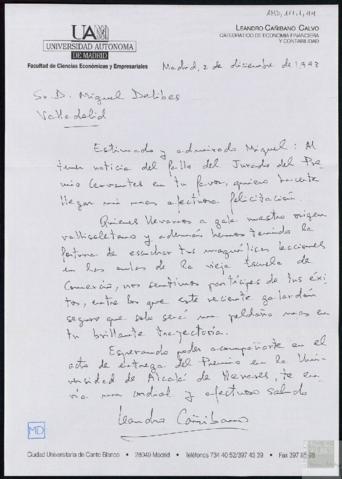 AMD, 111, 1, 44
UAM
UNIVERSIDAD AUTONOMA
DE MADRID
Facultad de Ciencias Económicas y Empresariales
LEANDRO CAÑIBANO CALVO
CATEDRATICO DE ECONOMIA FINANCIERA
Y CONTABILIDAD
Madrid, 2 de diciembre de 1993
Sr. D. Miguel Delibes
Valladolid
Estimado y admirado Miguel: Al
tener noticia del fallo del Jurado del Pre
mio Cervantes en tu favor, quiero hacerte
llegar mi mas afectuosa felicitación.
Quienes llevamos a gala nuestro origen
vallisoletano y además hemos tenido la
fortuna de escuchar tus magníficas lecciones
en las aulas de la vieja Escuela de
Comercio, nos sentimos partícipes de tus éxi
tos, entre los que este reciente galardón
seguro que solo será un peldaño mas en
tu brillante trayectoria.
Esperando poder acompañarte en el
acto de entrega del Premio en la Uni
versidad de Alcalá de Henares, te en
vía un cordial y afectuoso saludo
Leandro Cañibano
MD
Ciudad Universitaria de Canto Blanco • 28049 Madrid • Teléfonos 734 40 52/397 43 39 • Fax 397 85 98